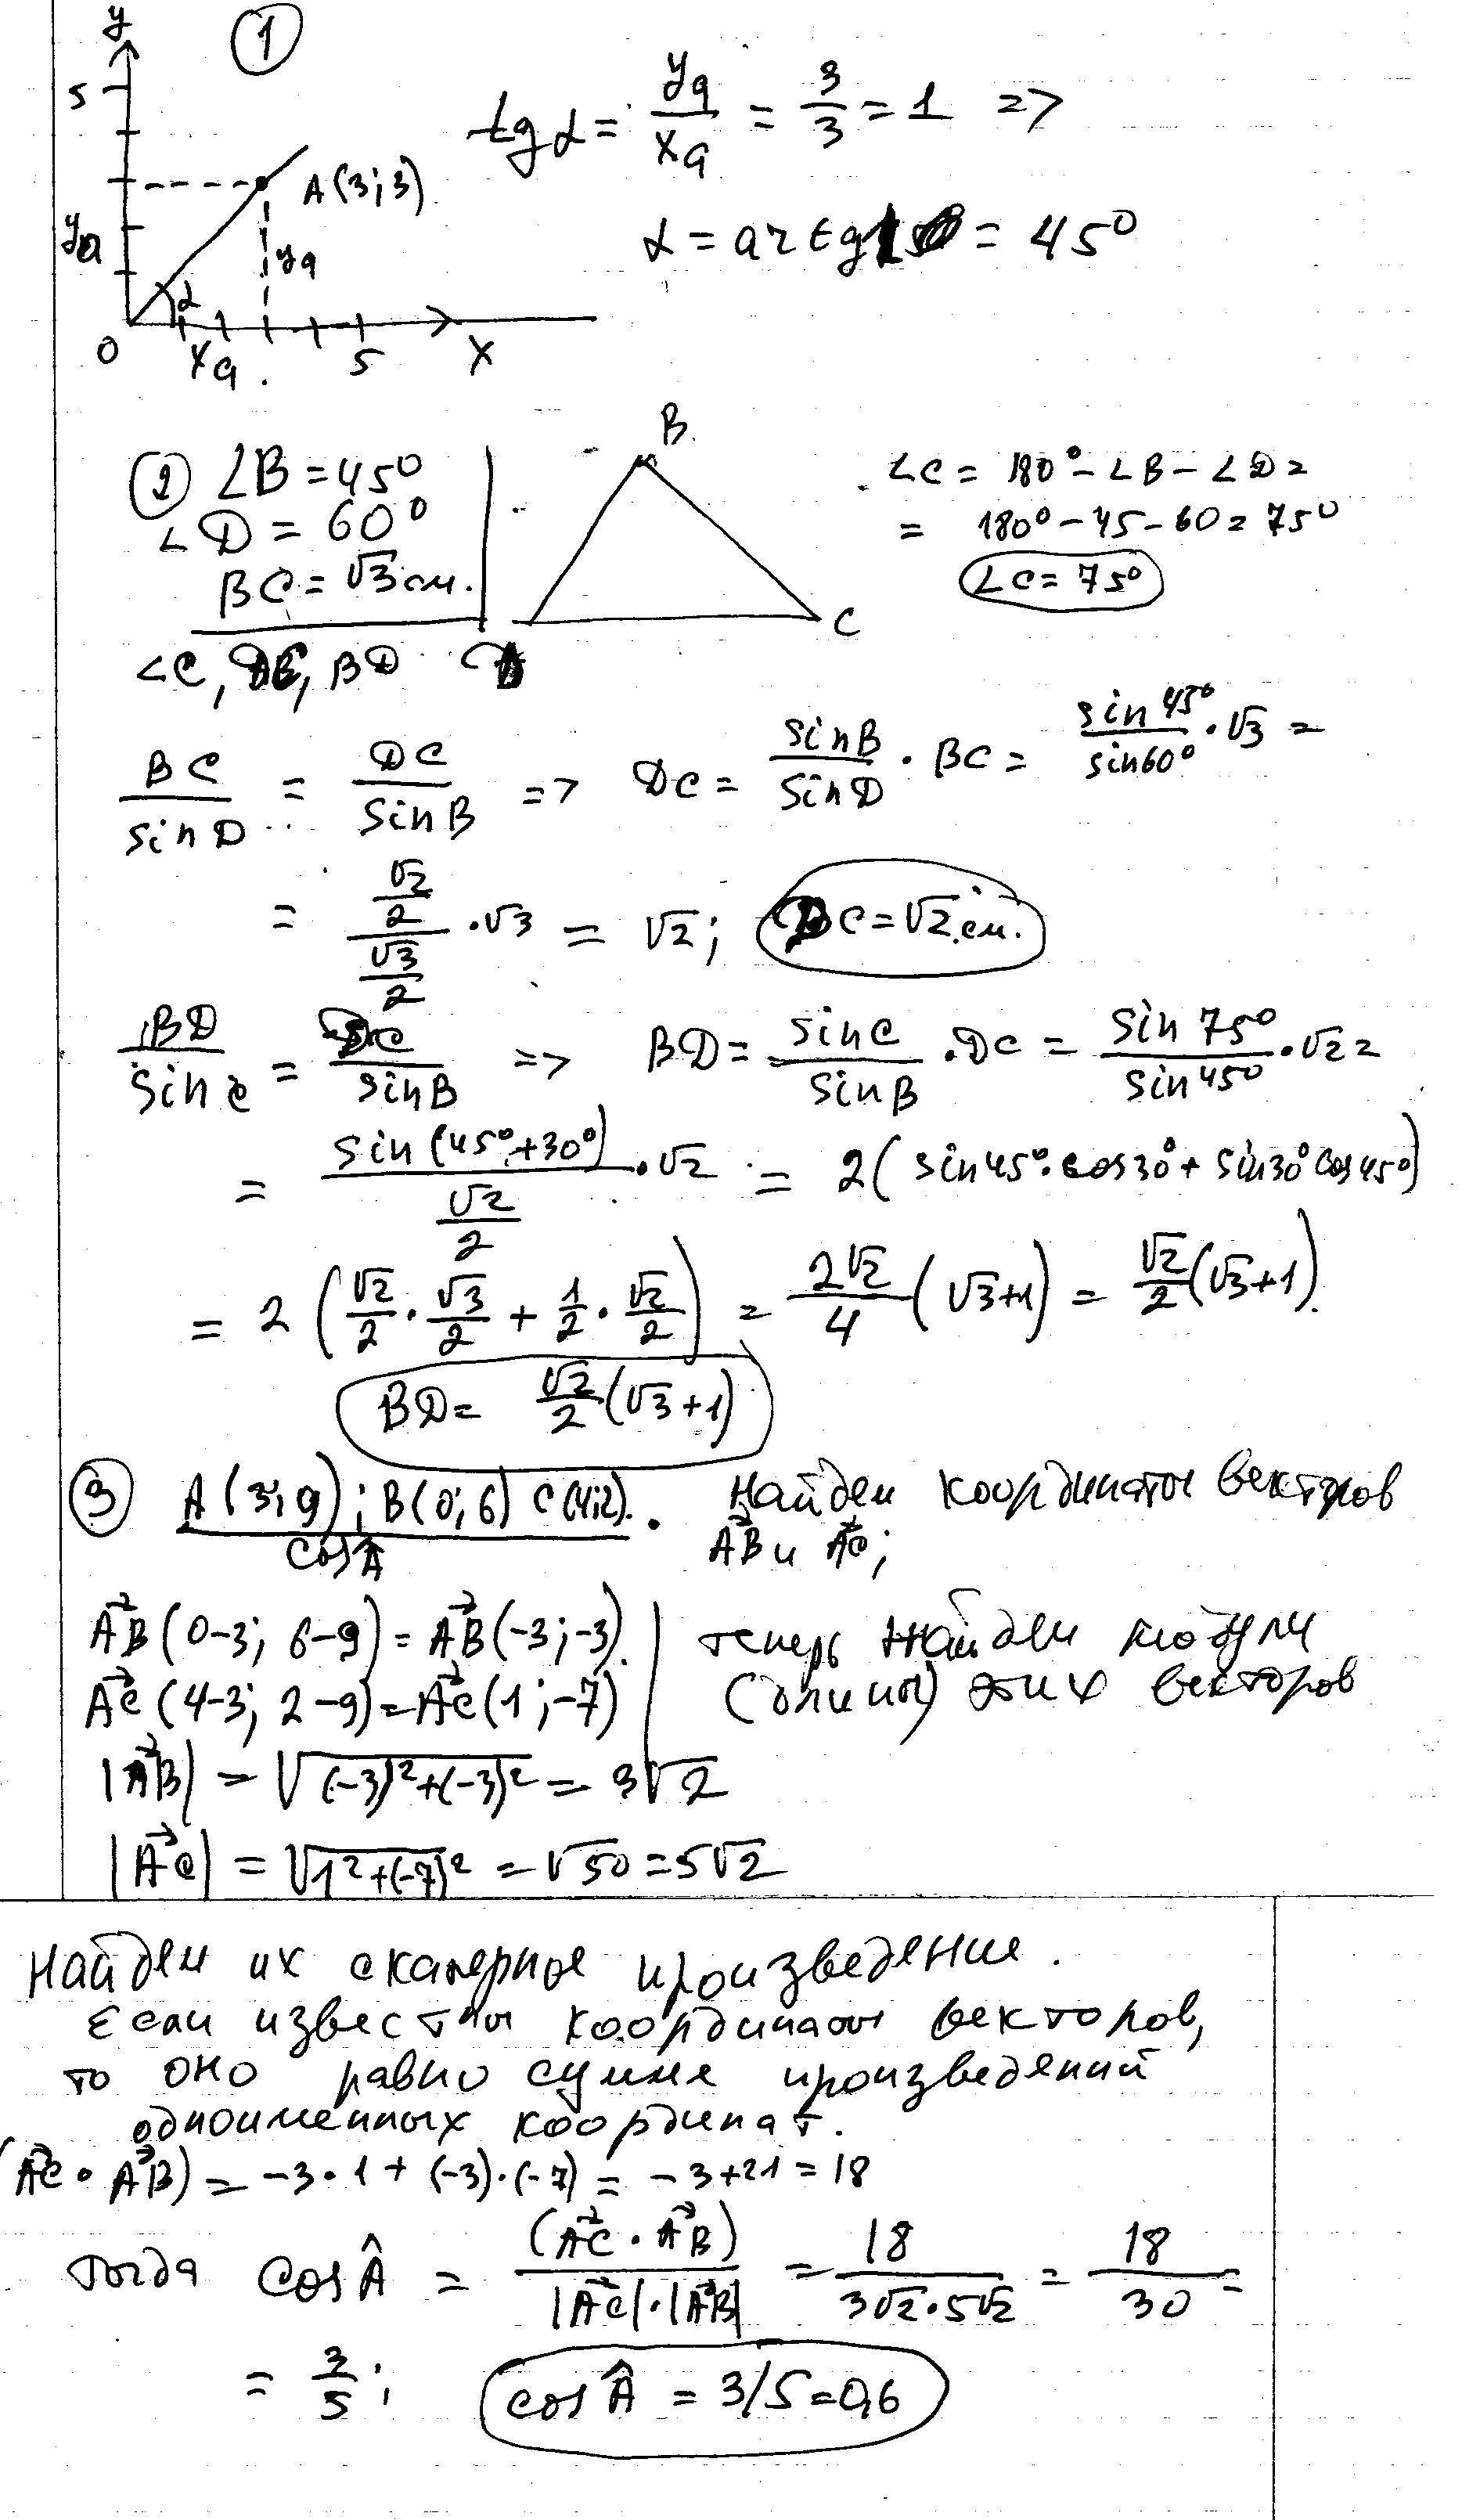 1
y
5
A(3;3)
yа
yа
α
0
xа
5
x
tg α = yа/xа = 3/3 = 1 =>
α = arctg 1 = 45°
2
∠B = 45°
∠D = 60°
BC = √3 см.
∠C, DC, BD
B
D
C
∠C = 180° - ∠B - ∠D =
= 180° - 45 - 60 = 75°
∠C = 75°
BC/sin D = DC/sin B => DC = sin B/sin D · BC = sin 45°/sin 60° · √3 =
= (√2/2)/(√3/2) · √3 = √2; DC = √2 см.
BD/sin C = DC/sin B => BD = sin C/sin B · DC = sin 75°/sin 45° · √2 =
= sin(45°+30°)/(√2/2) · √2 = 2(sin 45° · cos 30° + sin 30° cos 45°)
= 2(√2/2 · √3/2 + 1/2 · √2/2) = 2√2/4 (√3+1) = √2/2 (√3+1).
BD = √2/2 (√3+1)
3
A(3;9); B(0;6) C(4;2).
cos Â
Найдем координаты векторов
AB и AC;
AB(0-3; 6-9) = AB(-3;-3).
AC(4-3; 2-9) = AC(1;-7)
теперь найдем модули
(длины) этих векторов
|AB| = √((-3)²+(-3)²) = 3√2
|AC| = √(1²+(-7)²) = √50 = 5√2
Найдем их скалярное произведение.
Если известны координаты векторов,
то оно равно сумме произведений
одноименных координат.
(AC · AB) = -3·1 + (-3)·(-7) = -3+21 = 18
тогда cos Â = (AC · AB)/(|AC|·|AB|) = 18/(3√2·5√2) = 18/30 =
= 3/5; cos Â = 3/5 = 0,6